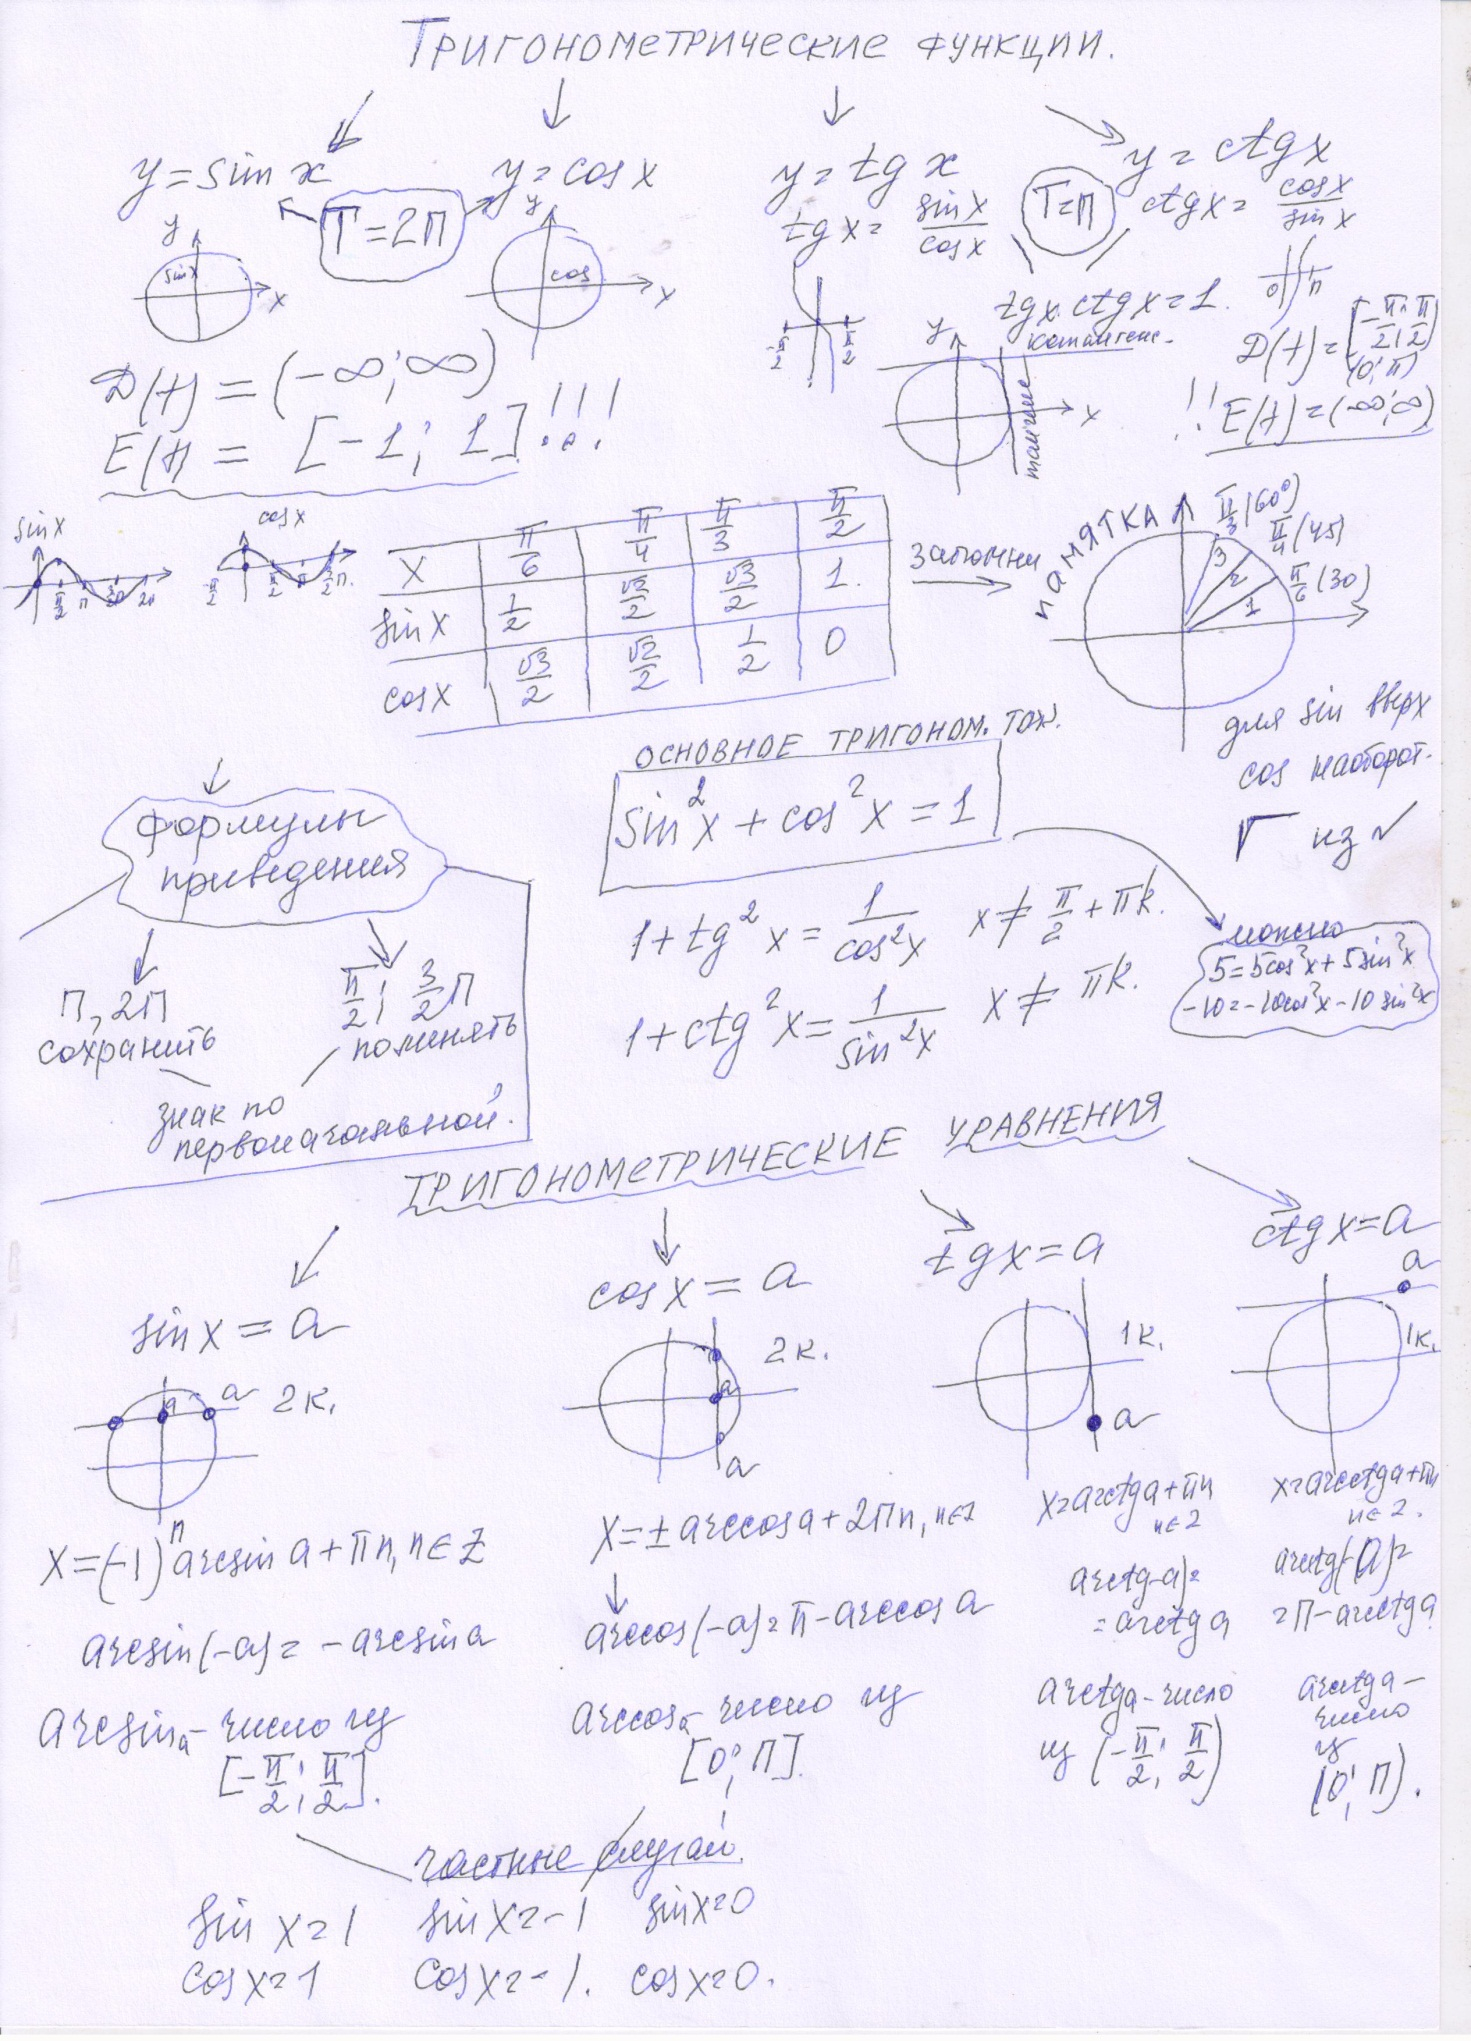 ТРИГОНОМЕТРИЧЕСКИЕ ФУНКЦИИ.
y = sin x
y = cos x
y = tg x
y = ctg x
T = 2П
T = П
tg x = sin x / cos x
ctg x = cos x / sin x
y
sin x
x
y
cos
x
-π/2
π/2
tg x · ctg x = 1.
0
П
D(f) = (-∞; ∞)
E(f) = [-1; 1]!!!
y
котангенс.
x
тангенс
D(f) = [-π/2; π/2)
(0; π)
!! E(f) = (-∞; ∞)
sin x
π/2 π 3π/2 2π
cos x
-π/2 π/2 π 3/2 П.
X π/6 π/4 π/3 π/2
sin x 1/2 √2/2 √3/2 1.
cos x √3/2 √2/2 1/2 0
запомни
ПАМЯТКА
π/3 (60°)
π/4 (45)
π/6 (30)
3
2
1
для sin вверх
cos наоборот.
Г из √
ОСНОВНОЕ ТРИГОНОМ. ТОЖ.
sin²x + cos²x = 1
1 + tg²x = 1/cos²x x ≠ π/2 + πk.
1 + ctg²x = 1/sin²x x ≠ πk.
можно
5 = 5cos²x + 5sin²x
-10 = -10cos²x - 10sin²x
Формулы
приведения
П, 2П
сохранить
π/2; 3/2 П
поменять
знак по
первоначальной.
ТРИГОНОМЕТРИЧЕСКИЕ УРАВНЕНИЯ
sin x = a
cos x = a
tg x = a
ctg x = a
a
a
2к.
2к.
a
a
1к.
a
a
1к.
x = (-1)ⁿ arcsin a + πn, n ∈ Z
x = ± arccos a + 2Пn, n ∈ Z
x = arctg a + πn
n ∈ Z
x = arcctg a + πn
n ∈ Z.
arcsin(-a) = - arcsin a
arccos(-a) = π - arccos a
arctg-a) =
= arctg a
arcctg(-a) =
= П - arcctg a
arcsin a - число из
[-π/2; π/2].
arccos a - число из
[0; П].
arctg a - число
из (-π/2; π/2)
arcctg a -
число
из
(0; П).
частные случаи.
sin x = 1 sin x = -1 sin x = 0
cos x = 1 cos x = -1. cos x = 0.